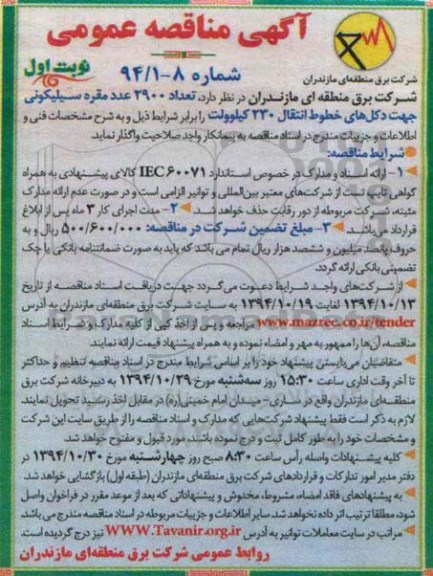 آگهی مناقصه عمومی
شماره ۸-۹۴/۱
نوبت اول
شرکت برق منطقه‌ای مازندران
شرکت برق منطقه ای مازندران در نظر دارد، تعداد ۲۹۰۰ عدد مقره سیلیکونی
جهت دکل‌های خطوط انتقال ۲۳۰ کیلوولت را برابر شرایط ذیل و به شرح مشخصات فنی و
اطلاعات و جزییات مندرج در اسناد مناقصه به پیمانکار واجد صلاحیت واگذار نماید.
شرایط مناقصه:
۱- ارائه اسناد و مدارک در خصوص استاندارد IEC ۶۰۰۷۱ کالای پیشنهادی به همراه
گواهی تایپ تست از شرکت‌های معتبر بین‌المللی و توانیر الزامی است و در صورت عدم ارائه مدارک
مثبته، شرکت مربوطه از دور رقابت حذف خواهد شد. ۲- مدت اجرای کار ۳ ماه پس از ابلاغ
قرارداد می‌باشد. ۳- مبلغ تضمین شرکت در مناقصه: ۵۰۰/۶۰۰/۰۰۰ ریال و به
حروف پانصد میلیون و ششصد هزار ریال تمام می باشد که باید به صورت ضمانتنامه بانکی یا چک
تضمینی بانکی ارائه گردد.
از شرکت‌های واجد شرایط دعوت می‌گردد جهت دریافت اسناد مناقصه از تاریخ
۱۳۹۴/۱۰/۱۳ لغایت ۱۳۹۴/۱۰/۱۹ به سایت شرکت برق منطقه‌ای مازندران به آدرس
www.mazrec.co.ir/tender مراجعه و پس از اخذ کپی از کلیه مدارک و شرایط اسناد
مناقصه، آن‌ها را ممهور به مهر و امضاء نموده و به همراه پیشنهاد قیمت ارائه نمایند.
متقاضیان می‌بایستی پیشنهاد خود را بر اساس شرایط مندرج در اسناد مناقصه تنظیم و حداکثر
تا آخر وقت اداری ساعت ۱۵:۳۰ روز سه‌شنبه مورخ ۱۳۹۴/۱۰/۲۹ به دبیرخانه شرکت برق
منطقه‌ای مازندران واقع در ساری-میدان امام خمینی(ره) در مقابل اخذ رسید تحویل نمایند.
لازم به ذکر است فقط پیشنهاد شرکت‌هایی که مدارک و اسناد مناقصه را از طریق سایت این شرکت
و مشخصات خود را به طور کامل ثبت و درج نموده باشند، مورد قبول و مفتوح خواهد شد.
کلیه پیشنهادات واصله رأس ساعت ۸:۳۰ صبح روز چهارشنبه مورخ ۱۳۹۴/۱۰/۳۰ در
دفتر مدیر امور تدارکات و قراردادهای شرکت برق منطقه‌ای مازندران (طبقه اول) بازگشایی خواهد شد.
به پیشنهادهای فاقد امضاء، مشروط، مخدوش و پیشنهاداتی که بعد از موعد مقرر در فراخوان واصل
شود، مطلقا ترتیب اثر داده نخواهد شد. سایر اطلاعات و جزییات مربوطه در اسناد مناقصه مندرج می‌باشد.
مراتب در سایت معاملات توانیر به آدرس WWW.Tavanir.org.ir نیز درج گردیده است.
روابط عمومی شرکت برق منطقه‌ای مازندران